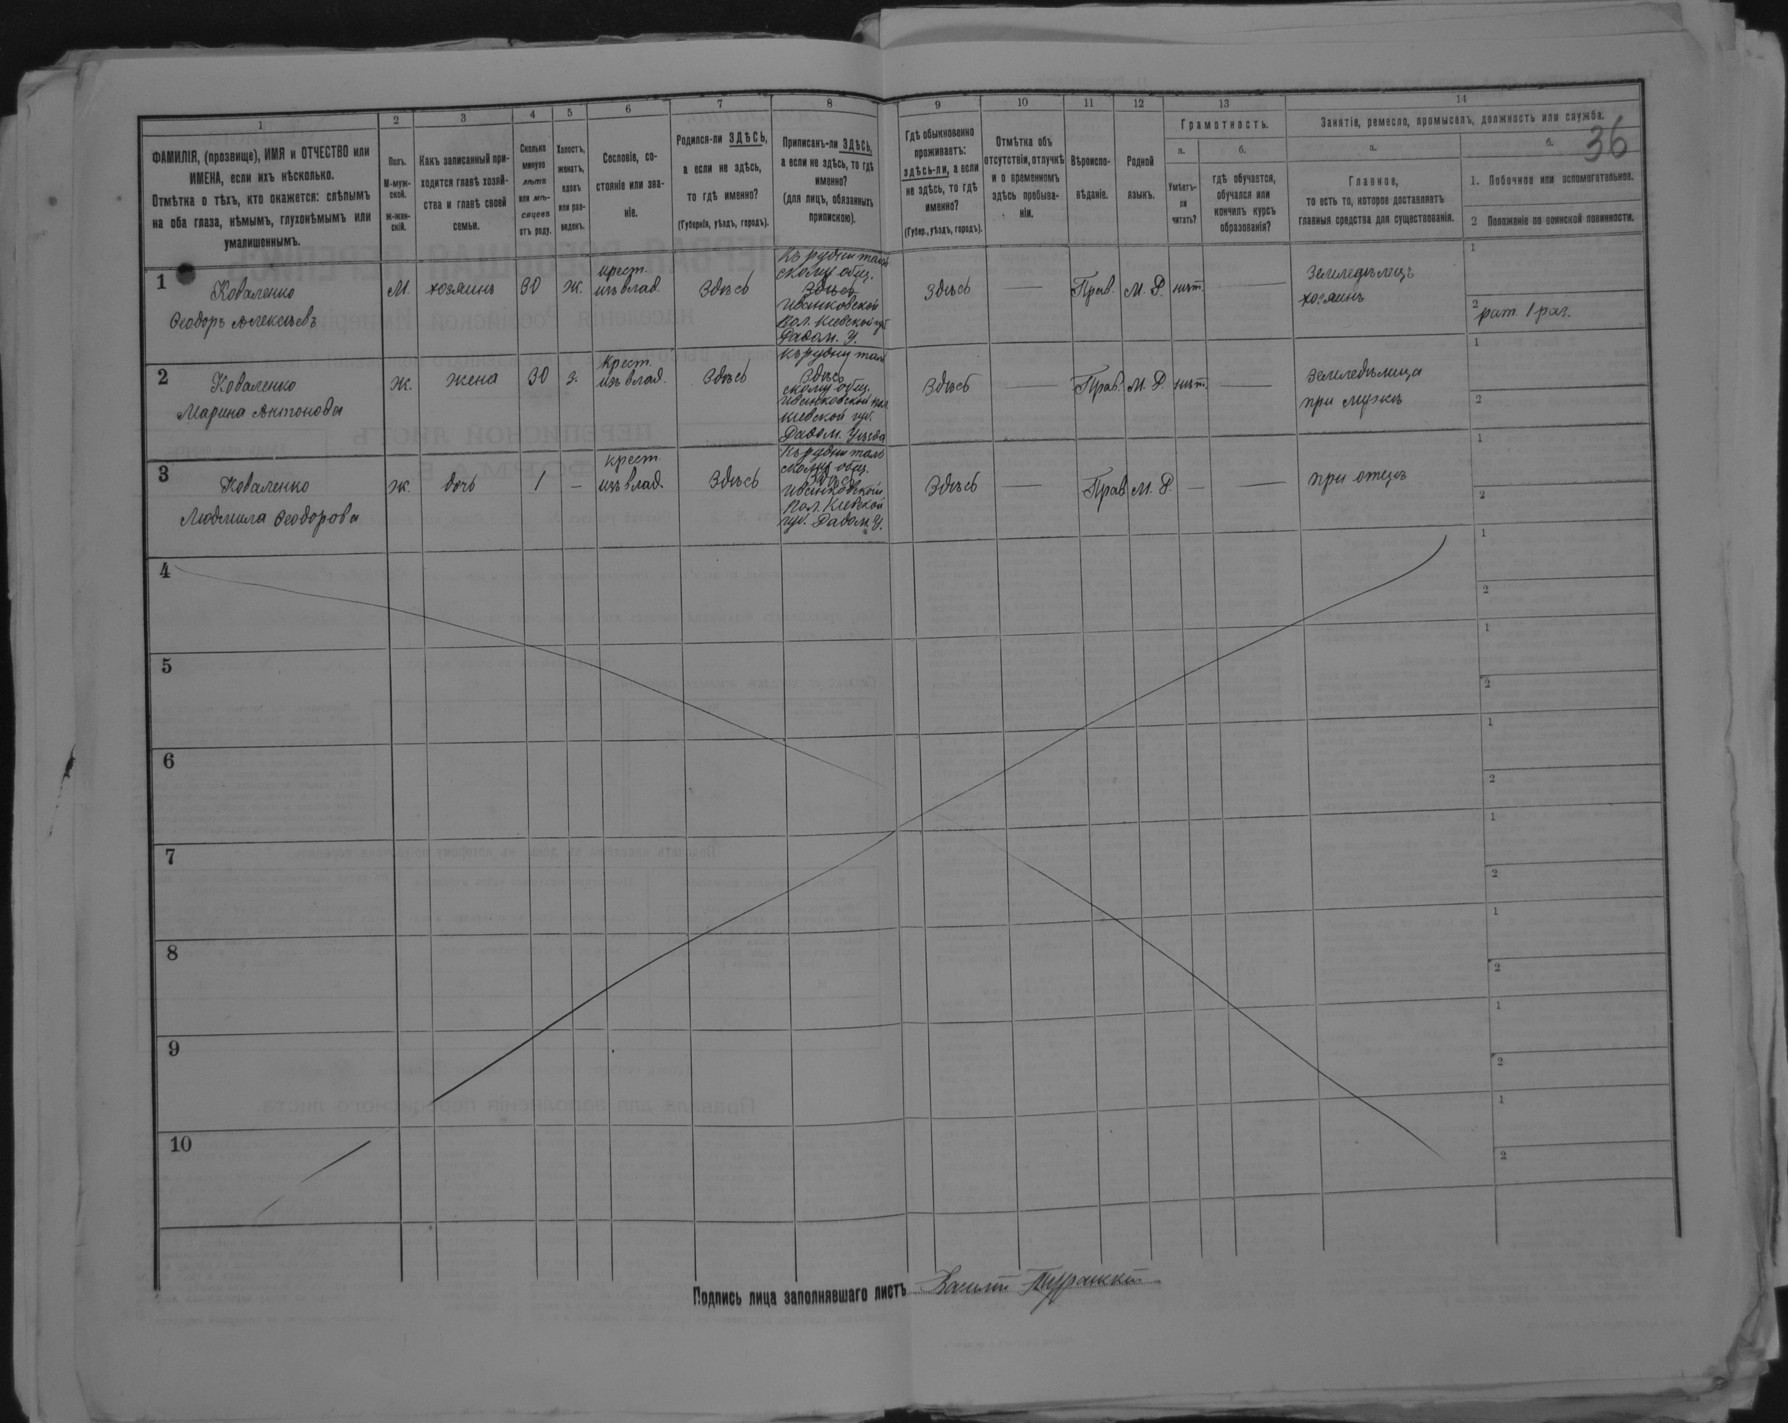 36
1
ФАМИЛІЯ, (прозвище), ИМЯ и ОТЧЕСТВО или
ИМЕНА, если ихъ нѣсколько.
Отмѣтка о тѣхъ, кто окажется: слѣпымъ
на оба глаза, нѣмымъ, глухонѣмымъ или
умалишеннымъ.
2
Полъ.
М-муж-
ской.
Ж-жен-
скій.
3
Какъ записанный при-
ходится главѣ хозяй-
ства и главѣ своей
семьи.
4
Сколько
минуло
лѣтъ
или мѣ-
сяцевъ
отъ роду.
5
Холостъ,
женатъ,
вдовъ
или раз-
веденъ.
6
Сословіе, со-
стояніе или зва-
ніе.
7
Родился-ли ЗДѢСЬ,
а если не здѣсь,
то гдѣ именно?
(Губернія, уѣздъ, городъ).
8
Приписанъ-ли ЗДѢСЬ,
а если не здѣсь, то гдѣ
именно?
(для лицъ, обязанныхъ
припискою).
9
Гдѣ обыкновенно
проживаетъ:
здѣсь-ли, а если
не здѣсь, то гдѣ
именно?
(Губер., уѣздъ, городъ).
10
Отмѣтка объ
отсутствіи, отлучкѣ
и о временномъ
здѣсь пребыва-
ніи.
11
Вѣроиспо-
вѣданіе.
12
Родной
языкъ.
13
Грамотность.
а.
Умѣетъ-
ли
читать?
б.
гдѣ обучается,
обучался или
кончилъ курсъ
образованія?
14
Занятіе, ремесло, промыселъ, должность или служба.
а.
Главное,
то есть то, которое доставляетъ
главныя средства для существованія.
б.
1. Побочное или вспомогательное.
2 Положеніе по воинской повинности.
1
Коваленко
Ѳеодоръ Алексѣевъ
М.
хозяинъ
30
ж.
крест.
изъ влад.
Здѣсь
скому общ.
Здѣсь
Вол. Кіевской
Радом. У.
Здѣсь
—
Прав.
М. Р.
нѣт.
—
Земледѣлецъ
хозяинъ
1
2
рат. 1 раз.
2
Коваленко
Марина Антонова
ж.
жена
30
з.
Крест.
изъ влад.
Здѣсь
Здѣсь
скому общ.
Радом. Уѣзда
Здѣсь
—
Прав.
М. Р.
нѣт.
—
Земледѣлица
при мужѣ
1
2
3
Коваленко
Людмила Ѳеодорова
ж.
дочь
1
—
крест.
изъ влад.
Здѣсь
скому общ.
Здѣсь
Вол. Кіевской
губ. Радом. У.
Здѣсь
—
Прав
М. Р.
—
—
при отцѣ
1
2
4
1
2
5
1
2
6
1
2
7
1
2
8
1
2
9
1
2
10
1
2
Подпись лица заполнявшаго листъ Василій